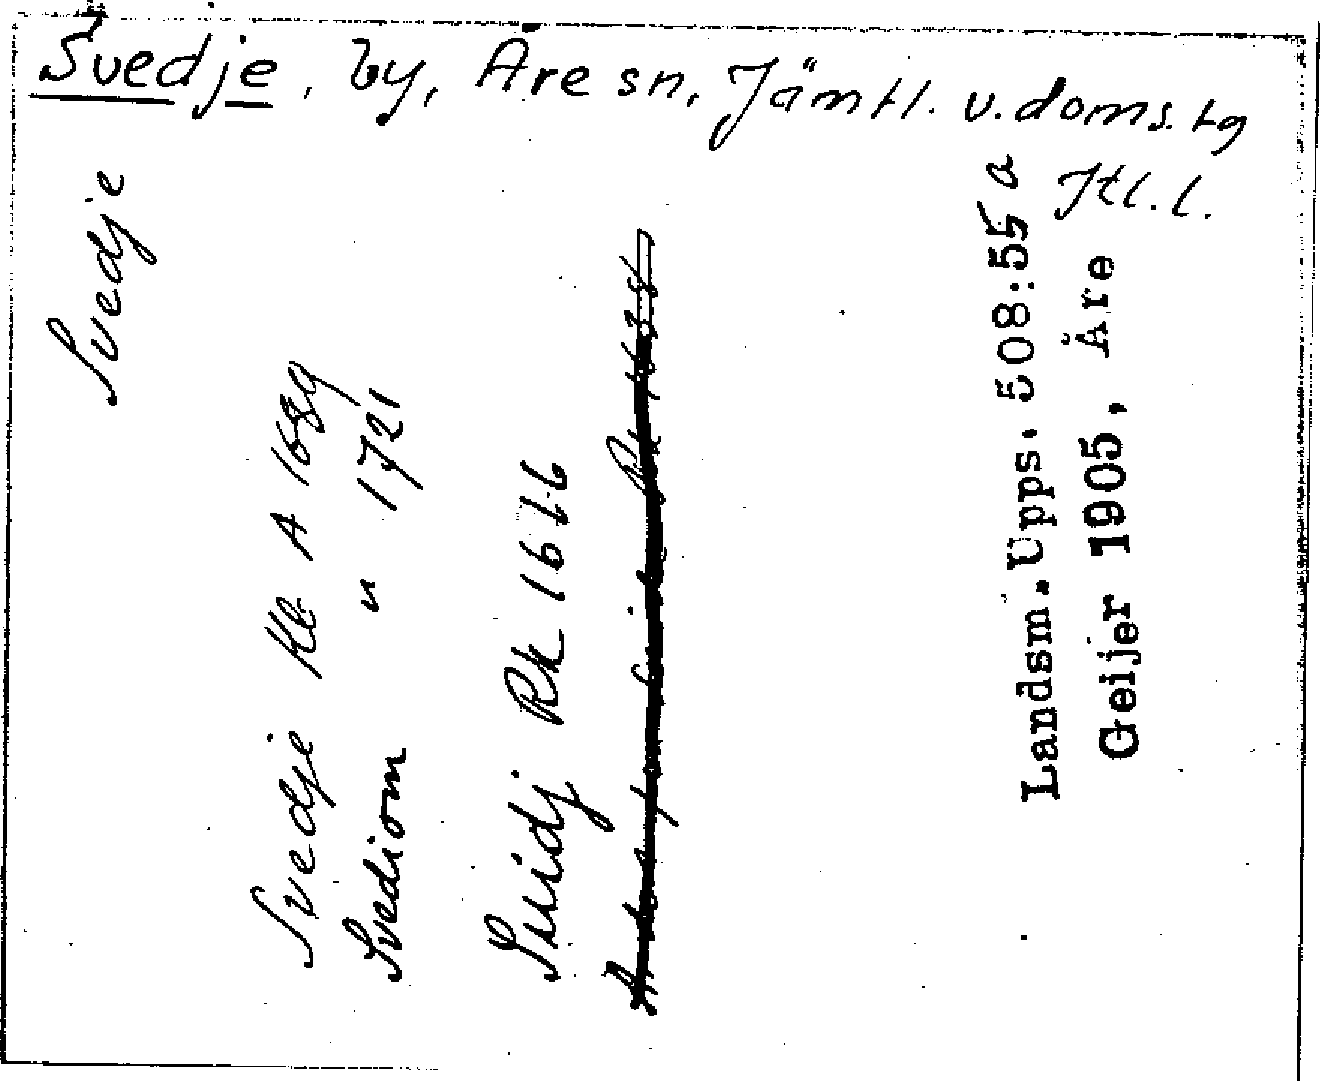 Svedje, by, Åre sn, Jämtl. v. doms. tg
Jtl. l.
Svedje
Svedje Kb A 1689
Svediom " 1721
Suidj Rk 1666
Landsm. Upps. 508:55 a
Geijer 1905, Åre